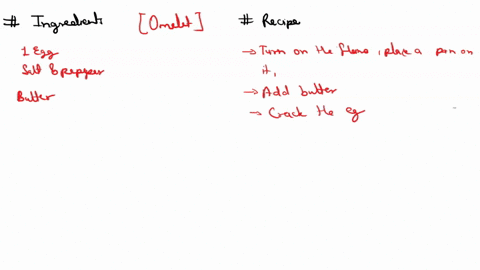 # Ingredients [Omelet] # Recipe
1 Egg
Salt & pepper
Butter
→ Turn on the stove, place a pan on
it,
→ Add butter
→ Crack the eg